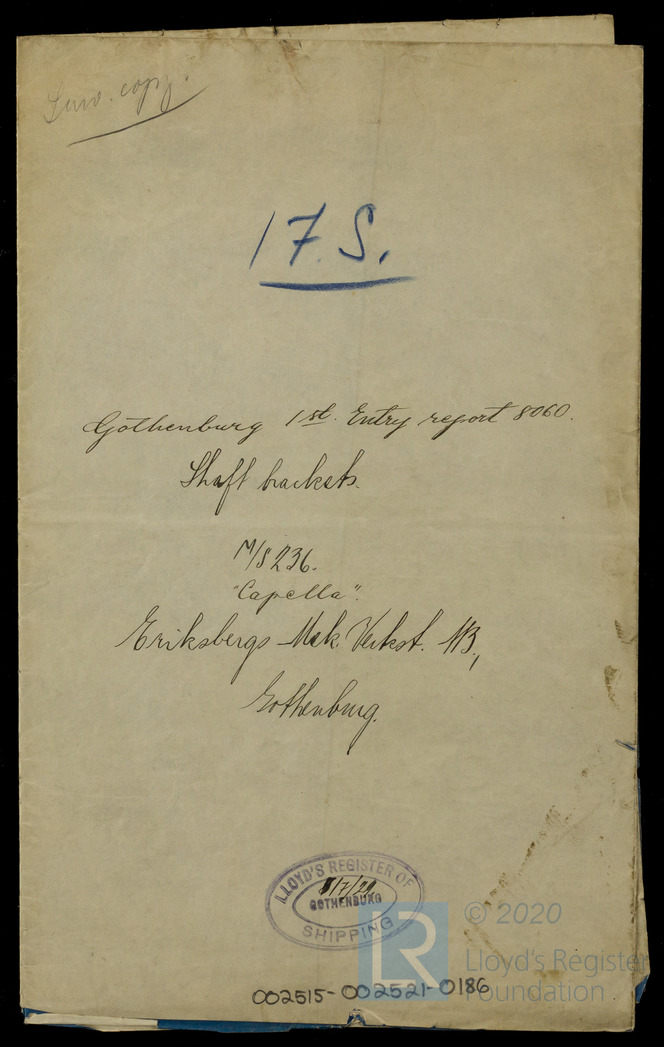 Surv. copy.
17. S.
Gothenburg 1st. Entry report 8060.
Shaft brackets.
M/S 236.
"Capella".
Eriksbergs Mek. Verkst. AB.,
Gothenburg.
LLOYD'S REGISTER OF
/7/29
GOTHENBURG
SHIPPING
LR
© 2020
Lloyd's Register
Foundation
002515-002521-0186